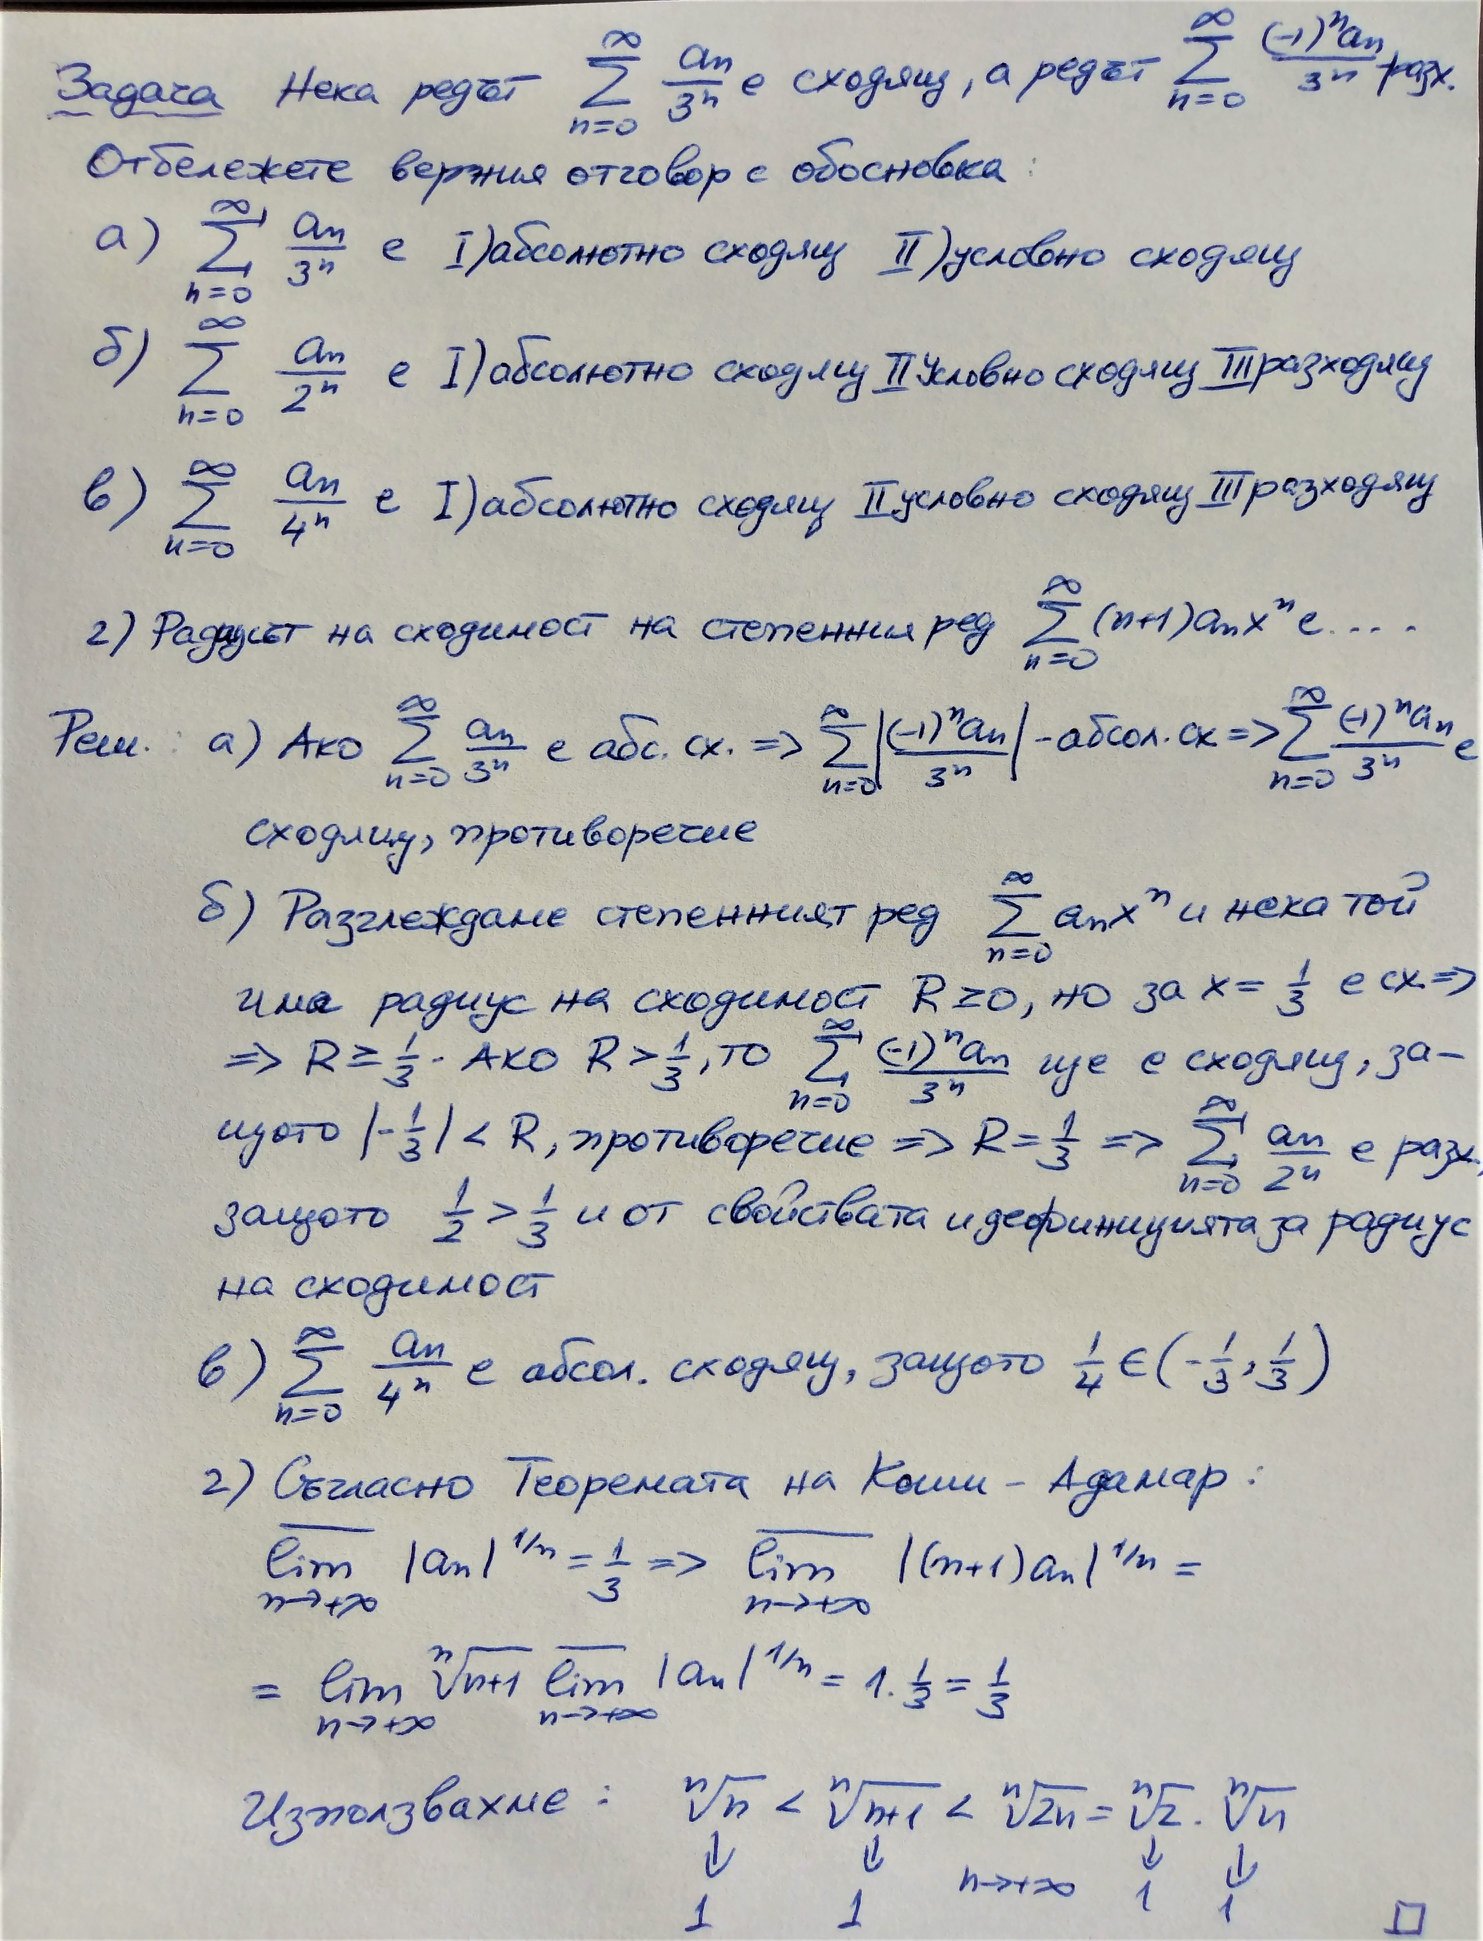 Задача Нека редът ∑_{n=0}^{∞} a_n/3^n е сходящ, а редът ∑_{n=0}^{∞} (-1)^n a_n/3^n разх.
Отбележете верния отговор с обосновка:
а) ∑_{n=0}^{∞} a_n/3^n е I) абсолютно сходящ II) условно сходящ
б) ∑_{n=0}^{∞} a_n/2^n е I) абсолютно сходящ II условно сходящ III разходящ
в) ∑_{n=0}^{∞} a_n/4^n е I) абсолютно сходящ II условно сходящ III разходящ
г) Радиусът на сходимост на степенния ред ∑_{n=0}^{∞} (n+1)a_n x^n е....
Реш.: а) Ако ∑_{n=0}^{∞} a_n/3^n е абс. сх. => ∑_{n=0}^{∞} |(-1)^n a_n/3^n| - абсол. сх => ∑_{n=0}^{∞} (-1)^n a_n/3^n е
сходящ, противоречие
б) Разглеждаме степенният ред ∑_{n=0}^{∞} a_n x^n и нека той
има радиус на сходимост R≥0, но за x = 1/3 е сх. =>
=> R ≥ 1/3. Ако R > 1/3, то ∑_{n=0}^{∞} (-1)^n a_n/3^n ще е сходящ, за-
щото |-1/3| < R, противоречие => R = 1/3 => ∑_{n=0}^{∞} a_n/2^n е разх.,
защото 1/2 > 1/3 и от свойствата и дефиницията за радиус
на сходимост
в) ∑_{n=0}^{∞} a_n/4^n е абсол. сходящ, защото 1/4 ∈ (-1/3, 1/3)
г) Съгласно Теоремата на Коши - Адамар:
\overline{lim}_{n→+∞} |a_n|^{1/n} = 1/3 => \overline{lim}_{n→+∞} |(n+1)a_n|^{1/n} =
= lim_{n→+∞} ⁿ√(n+1) \overline{lim}_{n→+∞} |a_n|^{1/n} = 1 . 1/3 = 1/3
Използвахме: ⁿ√n < ⁿ√(n+1) < ⁿ√(2n) = ⁿ√2 . ⁿ√n
↓ ↓ n→+∞ ↓ ↓
1 1 1 1 □